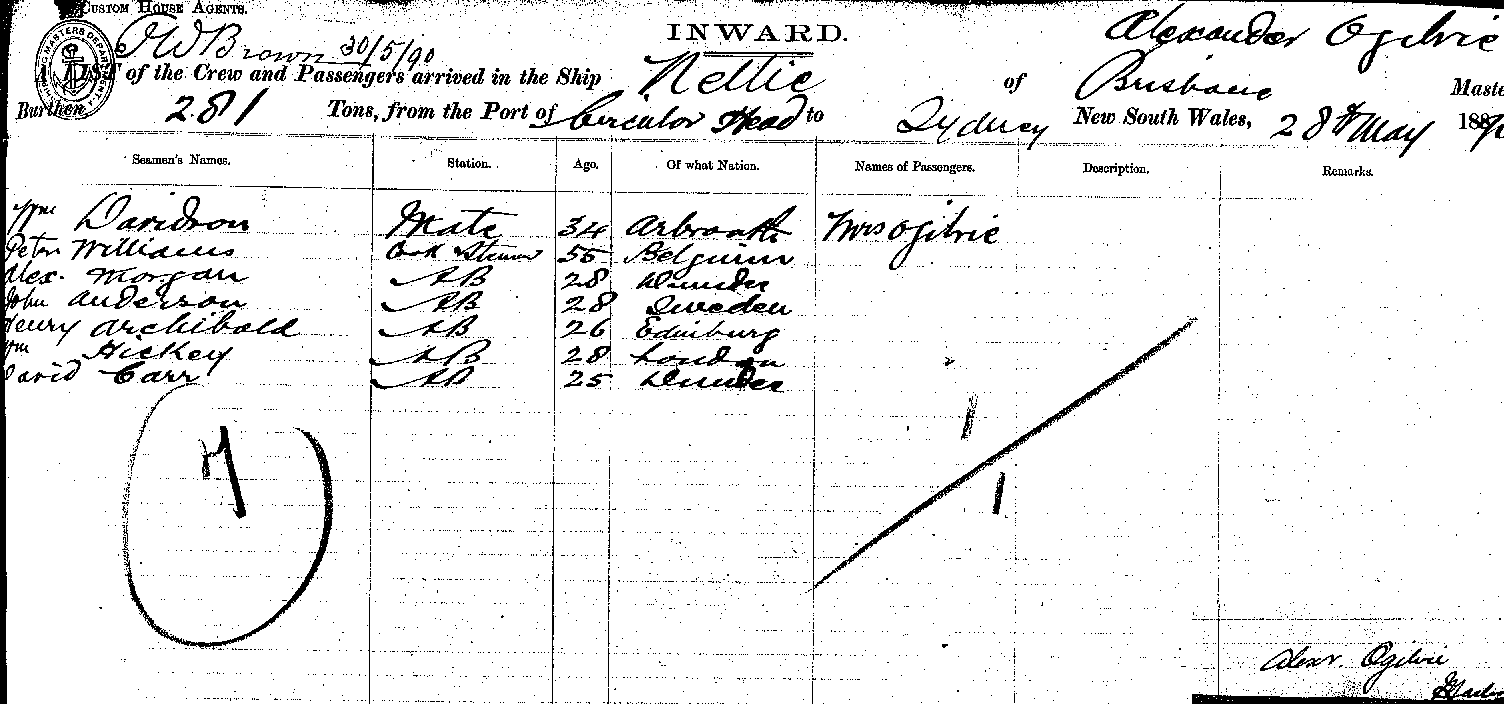 CUSTOM HOUSE AGENTS.
Brown 30/5/90
INWARD.
Alexander Ogilvie
A LIST of the Crew and Passengers arrived in the Ship Nettie of Brisbane Maste
Burthen 281 Tons, from the Port of Circular Head to Sydney New South Wales, 28th May 188
Seamen's Names. Station. Age. Of what Nation. Names of Passengers. Description. Remarks.
Wm Davidson Mate 34 Arbroath Mrs Ogilvie
Peter Williams 55 Belguim
Alex. Morgan AB 28 Dundee
John Anderson AB 28 Sweden
Henry Archibald AB 26 Edinburg
Wm Hickey AB 28 London
David Carr AB 25 Dundee
7
1
1
Alexr. Ogilvie